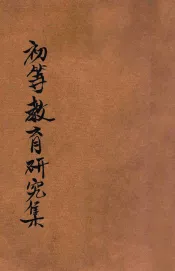 初等教育研究集